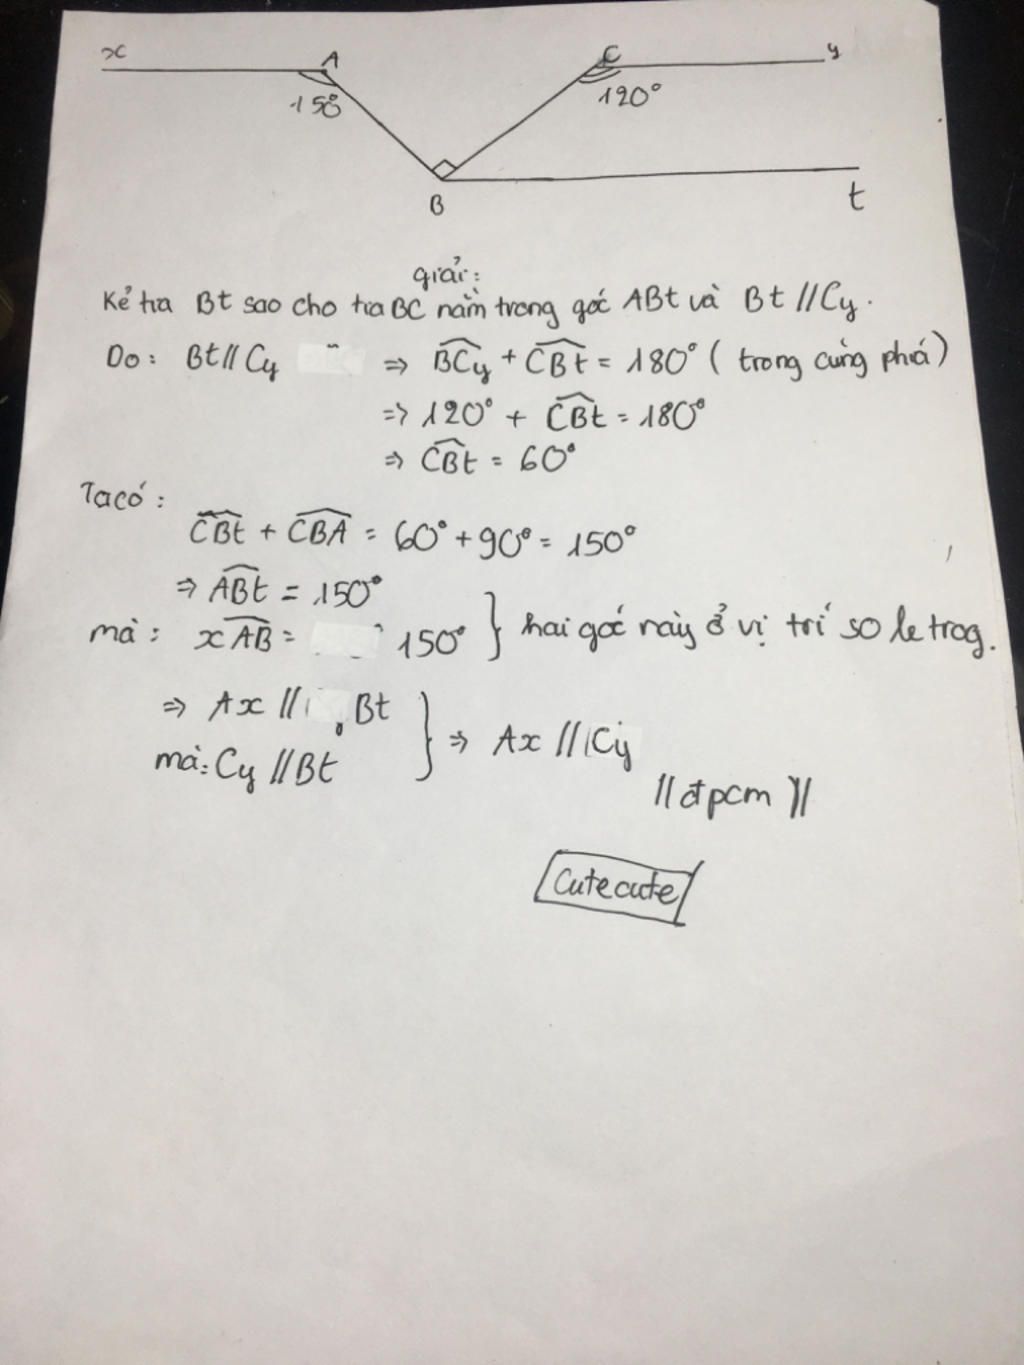 x A C y
150° 120°
B t
giải:
Kẻ tia Bt sao cho tia BC nằm trong góc ABt và Bt // Cy.
Do: Bt // Cy ⇒ BCy + CBt = 180° ( trong cùng phía)
⇒ 120° + CBt = 180°
⇒ CBt = 60°
Ta có:
CBt + CBA = 60° + 90° = 150°
⇒ ABt = 150°
mà: xAB = 150° } hai góc này ở vị trí so le trog.
⇒ Ax // Bt
mà: Cy // Bt } ⇒ Ax // Cy
// đpcm //
Cutecute